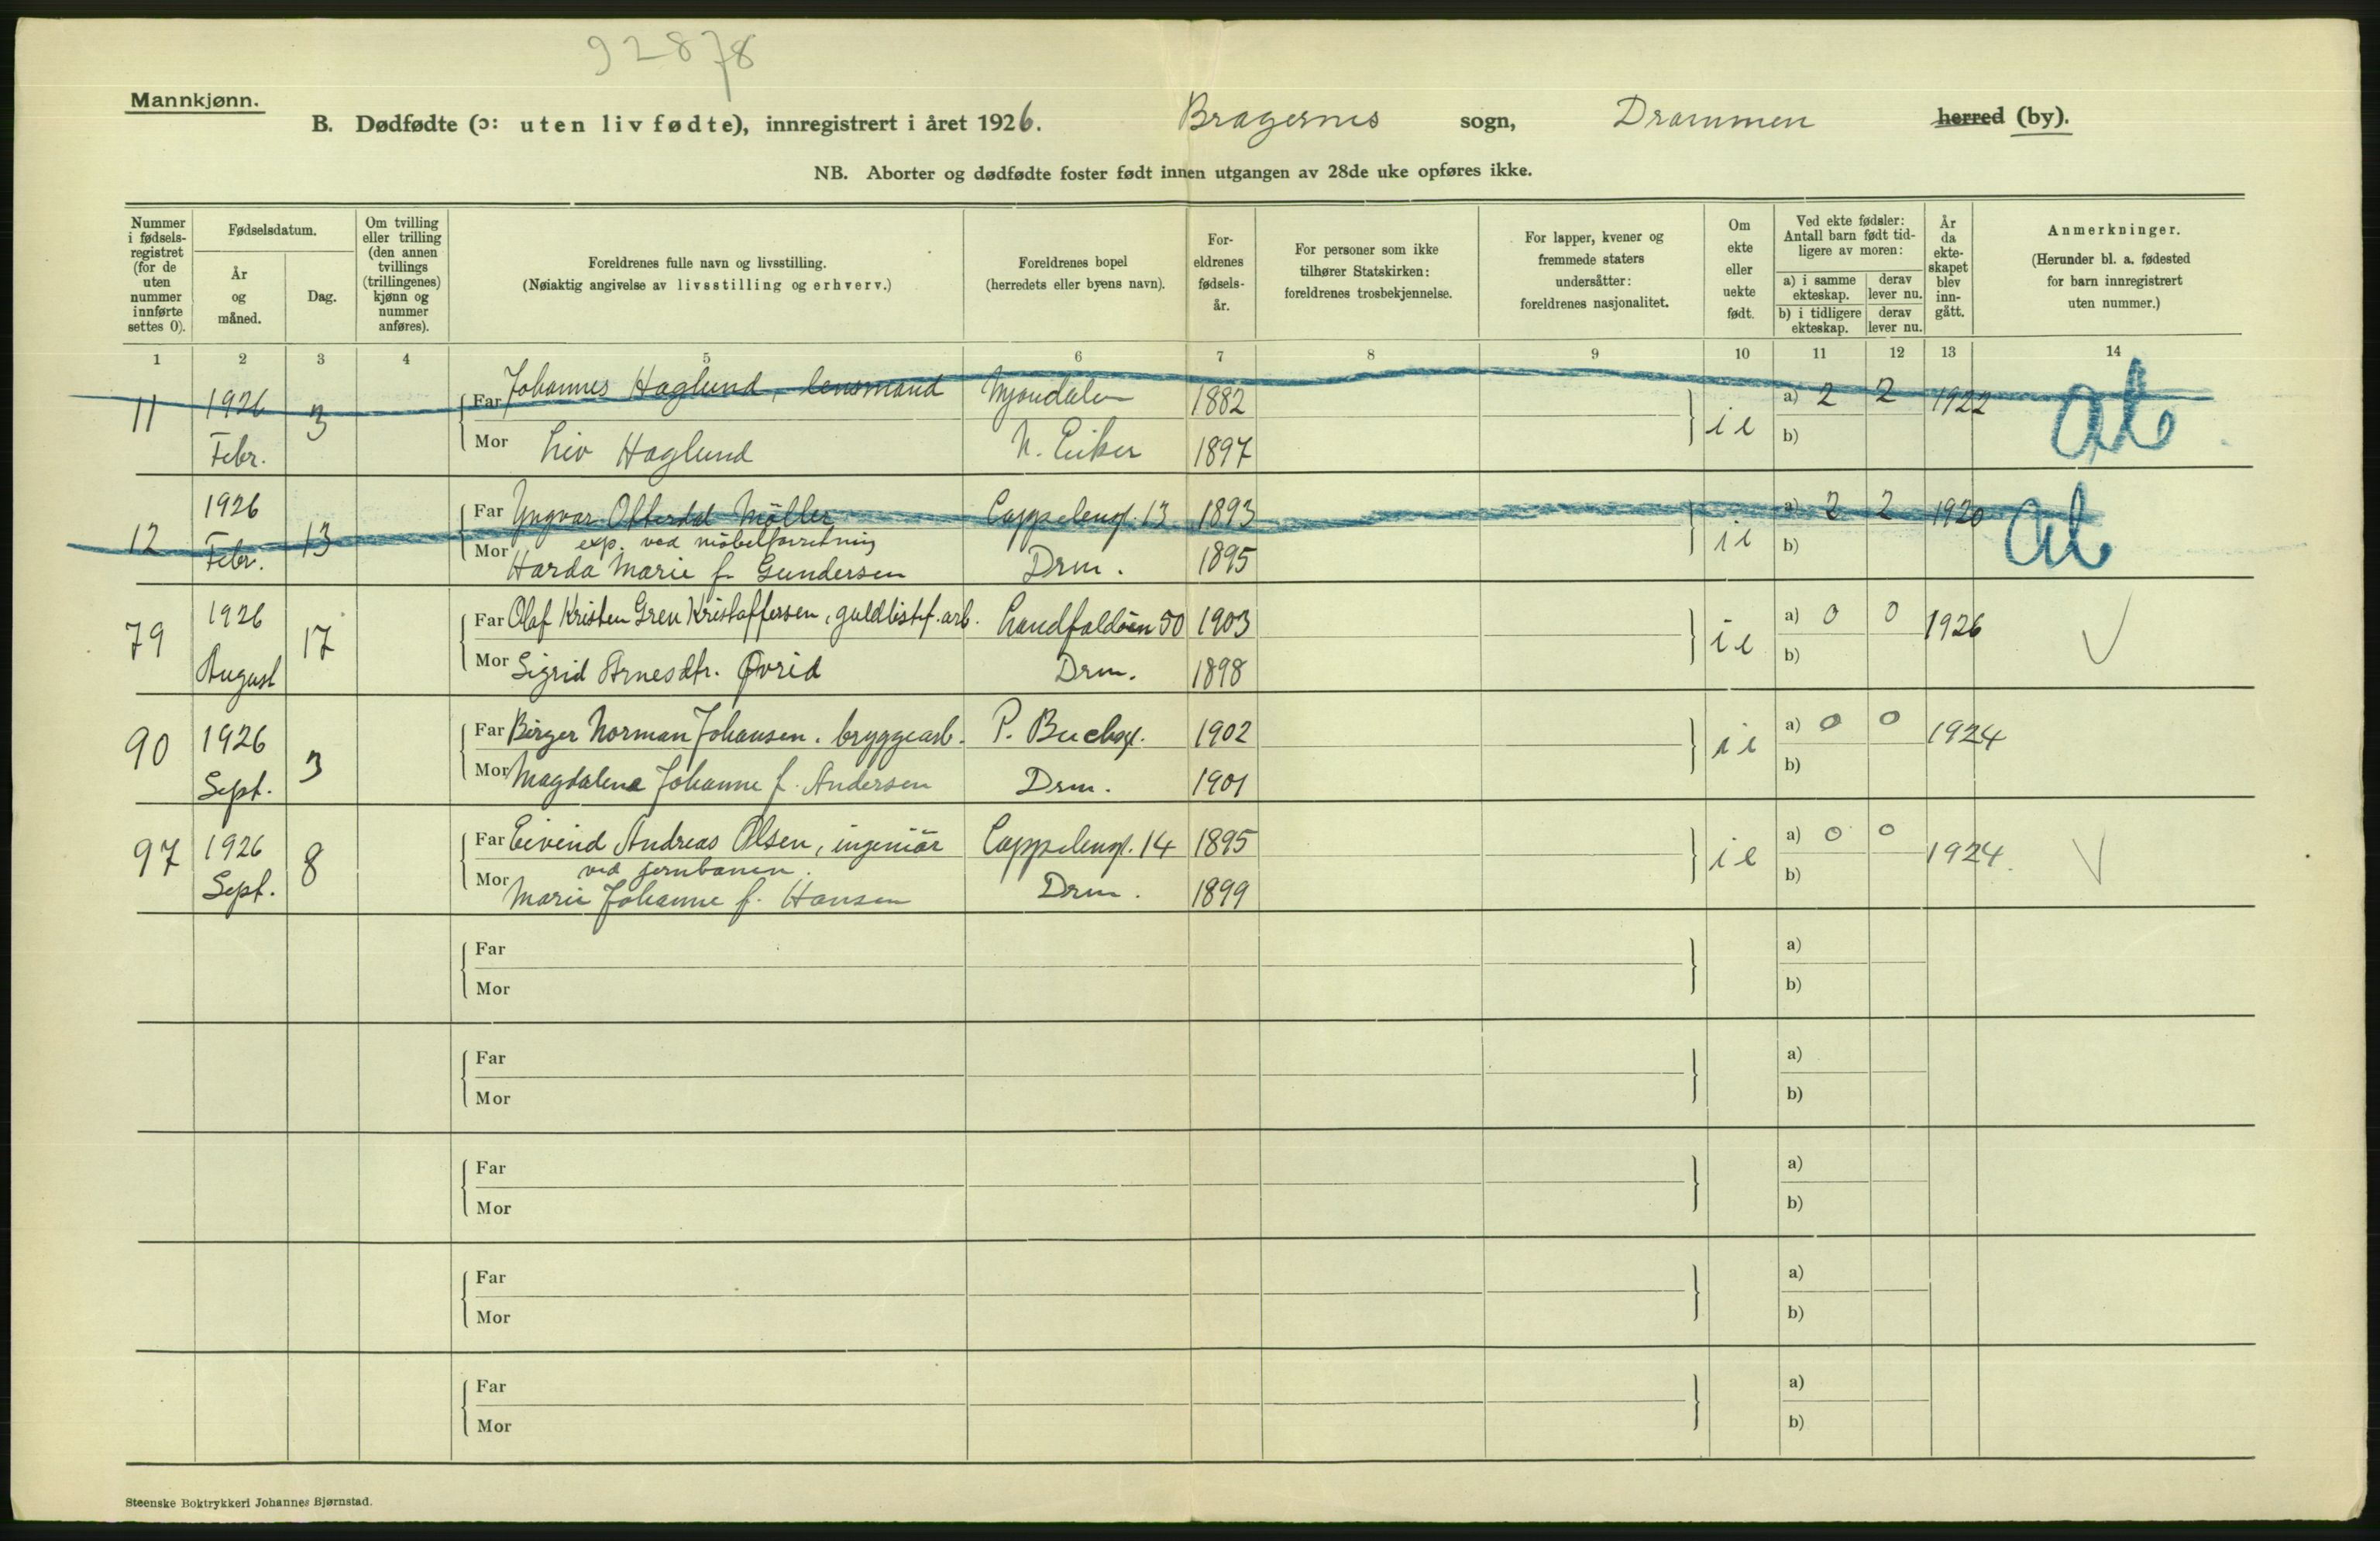 92878
Mannkjønn.
B. Dødfødte (ɔ: uten liv fødte), innregistrert i året 1926. Bragernes sogn, Drammen herred (by).
NB. Aborter og dødfødte foster født innen utgangen av 28de uke opføres ikke.
Nummer i fødsels-registret (for de uten nummer innførte settes 0).
Fødselsdatum.
År og måned.
Dag.
Om tvilling eller trilling (den annen tvillings (trillingenes) kjønn og nummer anføres).
Foreldrenes fulle navn og livsstilling.
(Nøiaktig angivelse av livsstilling og erhverv.)
Foreldrenes bopel
(herredets eller byens navn).
For-eldrenes fødsels-år.
For personer som ikke tilhører Statskirken: foreldrenes trosbekjennelse.
For lapper, kvener og fremmede staters undersåtter: foreldrenes nasjonalitet.
Om ekte eller uekte født.
Ved ekte fødsler: Antall barn født tid-ligere av moren:
a) i samme ekteskap. derav lever nu.
b) i tidligere ekteskap. derav lever nu.
År da ekte-skapet blev inn-gått.
Anmerkninger.
(Herunder bl. a. fødested for barn innregistrert uten nummer.)
1 2 3 4 5 6 7 8 9 10 11 12 13 14
11 1926 3 Far Johannes Haglund, lensmand Mjøndalen 1882 a) 2 2 1922 ab
Febr. Mor Liv Haglund N. Eiker 1897 i e b)
12 1926 13 Far Yngvar Møller Cappelensg. 13 1893 a) 2 2 1920 ab
Febr. exp. ved møbelforretning
Mor Harda Marie f. Gundersen Drm. 1895 i e b)
79 1926 17 Far Olaf Kristen Gren Kristoffersen, guldlistf. arb. Landfaldøen 50 1903 a) 0 0 1926
August Mor Sigrid Arnesdtr. Øvrid Drm. 1898 i e b)
90 1926 3 Far Birger Norman Johansen, bryggearb. P. Buchsg. 1902 a) 0 0 1924
Sept. Mor Magdalena Johanne f. Andersen Drm. 1901 i e b)
97 1926 8 Far Eivind Andreas Olsen, ingeniør Cappelensg. 14 1895 a) 0 0 1924.
ved jernbanen.
Sept. Mor Marie Johanne f. Hansen Drm. 1899 i e b)
Far a)
Mor b)
Far a)
Mor b)
Far a)
Mor b)
Far a)
Mor b)
Far a)
Mor b)
Steenske Boktrykkeri Johannes Bjørnstad.